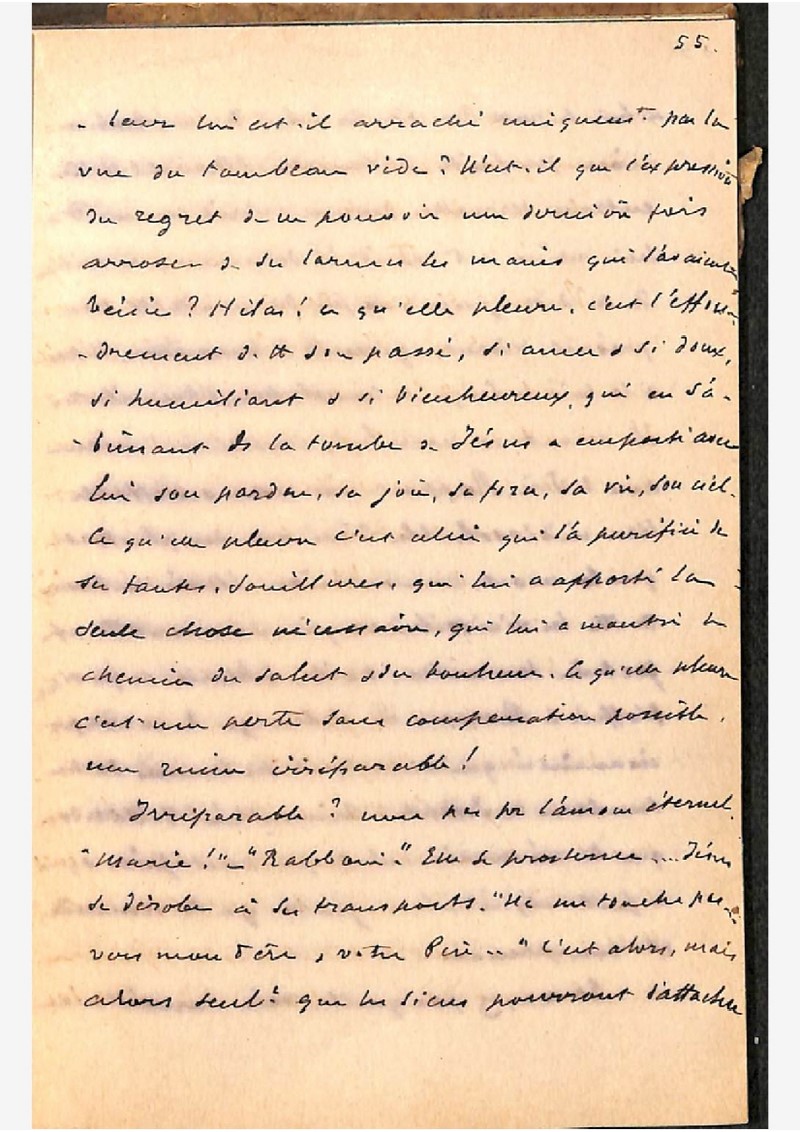 55.
- leur lui est-il arraché uniquemt par la
vue du tombeau vide? N'est-il que l'expression
du regret de ne pouvoir une dernière fois
arroser de ses larmes les mains qui l'avaient
bénie? Hélas! ce qu'elle pleure, c'est l'effon-
-drement de tt son passé, si amer & si doux,
si humiliant & si bienheureux, qui en s'a-
-bîmant ds la tombe de Jésus a emporté avec
lui son pardon, sa joie, sa force, sa vie, son ciel.
Ce qu'elle pleure c'est celui qui l'a purifiée de
ses fautes, souillures, qui lui a apporté la
seule chose nécessaire, qui lui a montré le
chemin du salut & du bonheur. Ce qu'elle pleure
c'est une perte sans compensation possible,
une ruine irréparable!
Irréparable? non pas pr l'amour éternel.
"Marie!" _ "Rabboni." Elle se prosterne.... Jésus
se dérobe à ses transports. "Ne me touche pas
vers mon Père, & votre Père .." C'est alors, mais
alors seult que les siens pourront s'attacher